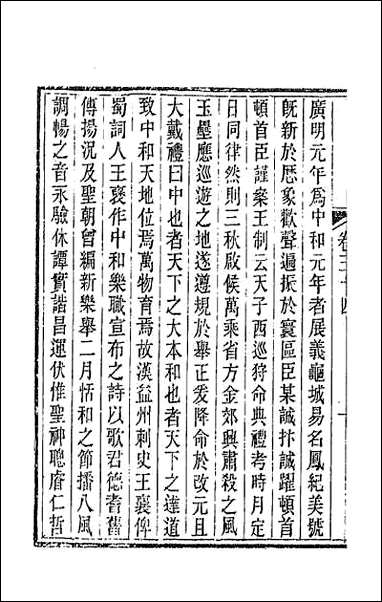 卷三十四
廣明元年爲中和元年者展義龜城易名鳳紀美號
旣新於厯象歡聲遐振於寰區臣某誠抃誠躍頓首
頓首臣謹案王制云天子西巡狩命典禮考時月定
日同律然則三秋啟候萬乘省方金郊興肅殺之風
玉壘應巡遊之地遂遵規於舉正爰降命於改元且
大戴禮曰中也者天下之大本和也者天下之達道
致中和天地位焉萬物育焉故漢益州刺史王襄俾
蜀詞人王襃作中和樂職宣布之詩以歌君德耆舊
傳揚況及聖朝曾編新樂舉二月恬和之節播八風
調暢之音永驗休譚實諧昌運伏惟聖神聰睿仁哲